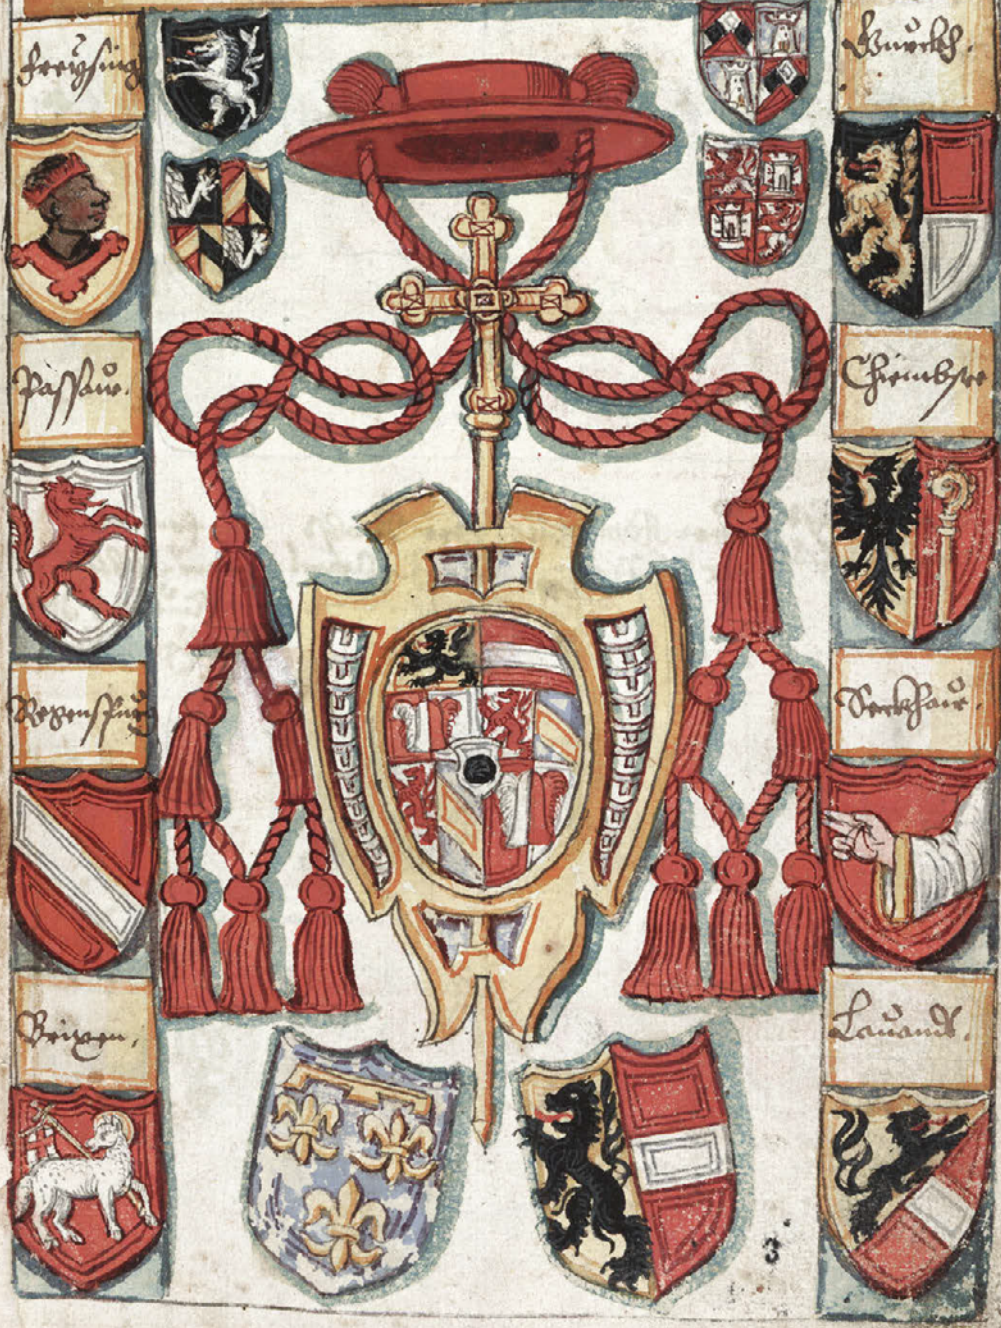 Freÿsing
Passaw.
Regenspurg
Brixen.
Gůrckh.
Chiembsee
Seckhaw.
Lauandt.
3